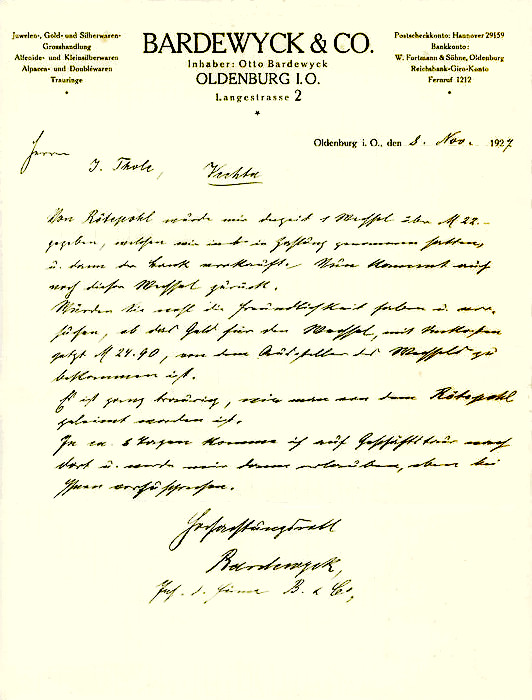 Juwelen-, Gold- und Silberwaren-
Grosshandlung
Alfenide- und Kleinsilberwaren
Alpacca- und Doubléwaren
Trauringe
BARDEWYCK & CO.
Inhaber: Otto Bardewyck
OLDENBURG I. O.
Langestrasse 2
Postscheckkonto: Hannover 29159
Bankkonto:
W. Fortmann & Söhne, Oldenburg
Reichsbank-Giro-Konto
Fernruf 1212
Oldenburg i. O., den 8. Nov. 1927
Herrn
J. Thole, Vechta
Von Rötepohl wurde mir derzeit 1 Wechsel über M 22.-
gegeben, welchen wir in Zahlung genommen hatten,
u. dann der Bank verkauft. Nun kommt auch
noch dieser Wechsel zurück.
Würden Sie wohl die Freundlichkeit haben u. ver-
suchen, ob das Geld für den Wechsel, mit Unkosten
jetzt M 24.90, von dem Aussteller des Wechsels zu
bekommen ist.
Es ist ganz traurig, wie man von dem Rötepohl
geleimt worden ist.
In ca. 6 Tagen komme ich auf Geschäftstour nach
dort u. werde mir dann erlauben, eben bei
Ihnen vorzusprechen.
Hochachtungsvoll
Bardewyck,
Inh. d. Firma B. & Co,